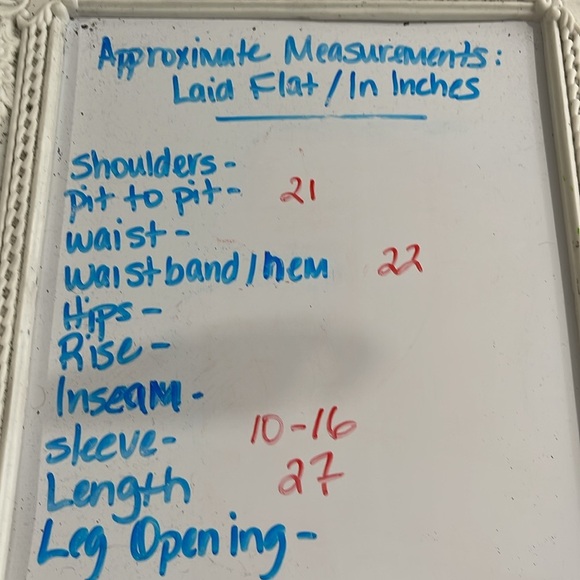 Approximate Measurements:
Laid Flat / In Inches
Shoulders -
pit to pit - 21
waist -
waistband / hem 22
Hips -
Rise -
Inseam -
sleeve - 10-16
Length 27
Leg Opening -